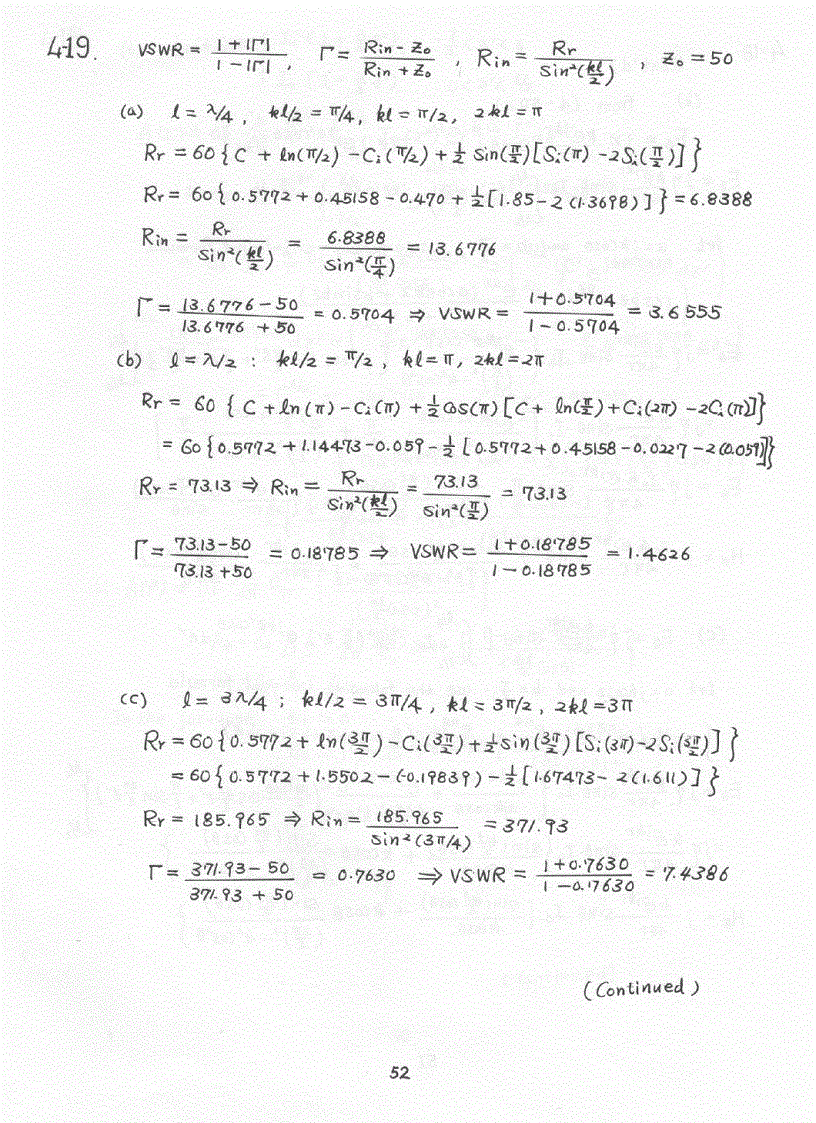 4-19. VSWR = (1 + |Γ|) / (1 − |Γ|), Γ = (Rin − Z₀) / (Rin + Z₀), Rin = Rr / sin²(kl/2), Z₀ = 50
(a) l = λ/4, kl/2 = π/4, kl = π/2, 2kl = π
Rr = 60 { C + ln(π/2) − Ci(π/2) + ½ sin(π/2) [Si(π) − 2Si(π/2)] }
Rr = 60 { 0.5772 + 0.45158 − 0.470 + ½ [1.85 − 2 (1.3698)] } = 6.8388
Rin = Rr / sin²(kl/2) = 6.8388 / sin²(π/4) = 13.6776
Γ = (13.6776 − 50) / (13.6776 + 50) = 0.5704 ⇒ VSWR = (1 + 0.5704) / (1 − 0.5704) = 3.6555
(b) l = λ/2 : kl/2 = π/2, kl = π, 2kl = 2π
Rr = 60 { C + ln(π) − Ci(π) + ½ cos(π) [C + ln(π/2) + Ci(2π) − 2Ci(π)] }
= 60 { 0.5772 + 1.14473 − 0.059 − ½ [0.5772 + 0.45158 − 0.0227 − 2(0.059)] }
Rr = 73.13 ⇒ Rin = Rr / sin²(kl/2) = 73.13 / sin²(π/2) = 73.13
Γ = (73.13 − 50) / (73.13 + 50) = 0.18785 ⇒ VSWR = (1 + 0.18785) / (1 − 0.18785) = 1.4626
(c) l = 3λ/4 ; kl/2 = 3π/4, kl = 3π/2, 2kl = 3π
Rr = 60 { 0.5772 + ln(3π/2) − Ci(3π/2) + ½ sin(3π/2) [Si(3π) − 2Si(3π/2)] }
= 60 { 0.5772 + 1.5502 − (−0.19839) − ½ [1.67473 − 2(1.611)] }
Rr = 185.965 ⇒ Rin = 185.965 / sin²(3π/4) = 371.93
Γ = (371.93 − 50) / (371.93 + 50) = 0.7630 ⇒ VSWR = (1 + 0.7630) / (1 − 0.7630) = 7.4386
(Continued)
52